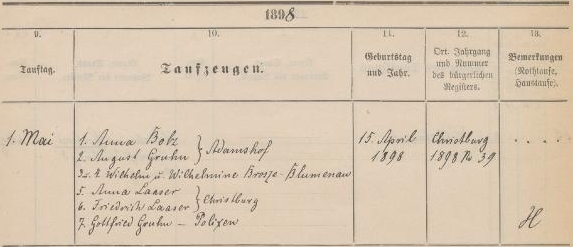 1898
9. 10. 11. 12. 13.
Tauftag. Taufzeugen. Geburtstag und Jahr. Ort, Jahrgang und Nummer des bürgerlichen Registers. Bemerkungen (Nothtaufe, Haustaufe).
1. Mai
1. Anna Bolz
2. August Gruhn } Adamshof
3 u. 4. Wilhelm u. Wilhelmine Brosze - Blumenau
5. Anna Laaser
6. Friedrich Laaser } Christburg
7. Gottfried Gruhn - Polixen
15. April
1898
Christburg
1898 No 39
. . . .
H